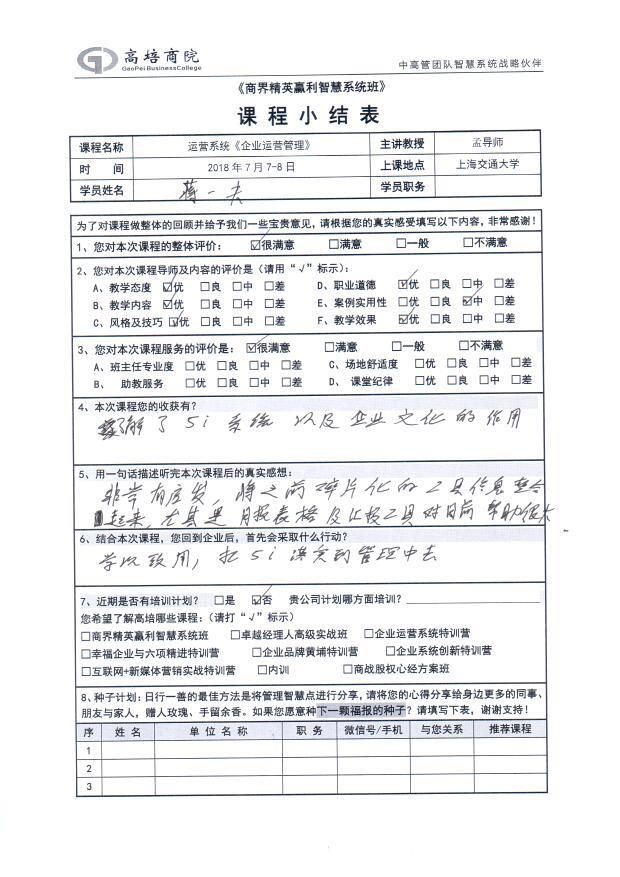 高培商院
GaoPei BusinessCollege
中高管团队智慧系统战略伙伴
《商界精英赢利智慧系统班》
课程小结表
课程名称 运营系统《企业运营管理》 主讲教授 孟导师
时 间 2018年7月7-8日 上课地点 上海交通大学
学员姓名 蒋一夫 学员职务
为了对课程做整体的回顾并给予我们一些宝贵意见，请根据您的真实感受填写以下内容，非常感谢！
1、您对本次课程的整体评价： ☑很满意 □满意 □一般 □不满意
2、您对本次课程导师及内容的评价是（请用“√”标示）：
A、教学态度 ☑优 □良 □中 □差 D、职业道德 ☑优 □良 □中 □差
B、教学内容 ☑优 □良 □中 □差 E、案例实用性 □优 □良 ☑中 □差
C、风格及技巧 ☑优 □良 □中 □差 F、教学效果 ☑优 □良 □中 □差
3、您对本次课程服务的评价是： ☑很满意 □满意 □一般 □不满意
A、班主任专业度 □优 □良 □中 □差 C、场地舒适度 □优 □良 □中 □差
B、 助教服务 □优 □良 □中 □差 D、课堂纪律 □优 □良 □中 □差
4、本次课程您的收获有？
了解了5i系统以及企业文化的作用
5、用一句话描述听完本次课程后的真实感想：
非常有启发，将之前碎片化的工具信息整合
起来，尤其是月报表格及比较工具对目前帮助很大
6、结合本次课程，您回到企业后，首先会采取什么行动？
学以致用，把5i落实到管理中去
7、近期是否有培训计划？ □是 ☑否 贵公司计划哪方面培训？
您希望了解高培哪些课程：（请打“√”标示）
□商界精英赢利智慧系统班 □卓越经理人高级实战班 □企业运营系统特训营
□幸福企业与六项精进特训营 □企业品牌黄埔特训营 □企业系统创新特训营
□互联网+新媒体营销实战特训营 □内训 □商战股权心经方案班
8、种子计划：日行一善的最佳方法是将管理智慧点进行分享，请将您的心得分享给身边更多的同事、
朋友与家人，赠人玫瑰、手留余香。如果您愿意种下一颗福报的种子？请填写下表，谢谢支持！
序 姓名 单位名称 职务 微信号/手机 与您关系 推荐课程
1
2
3